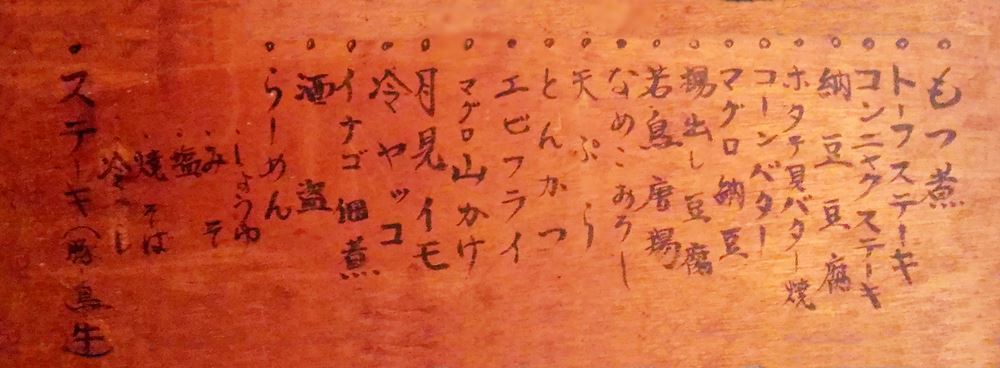 もつ煮
トーフステーキ
コンニャクステーキ
納豆豆腐
ホタテ貝バター焼
コーンバター
マグロ納豆
揚出し豆腐
若鳥唐揚
なめこおろし
天ぷら
とんかつ
エビフライ
マグロ山かけ
月見イモ
冷ヤッコ
イナゴ佃煮
酒盗
らーめん
しょうゆ
みそ
塩
焼そば
冷やし
ステーキ(豚・鳥・牛)